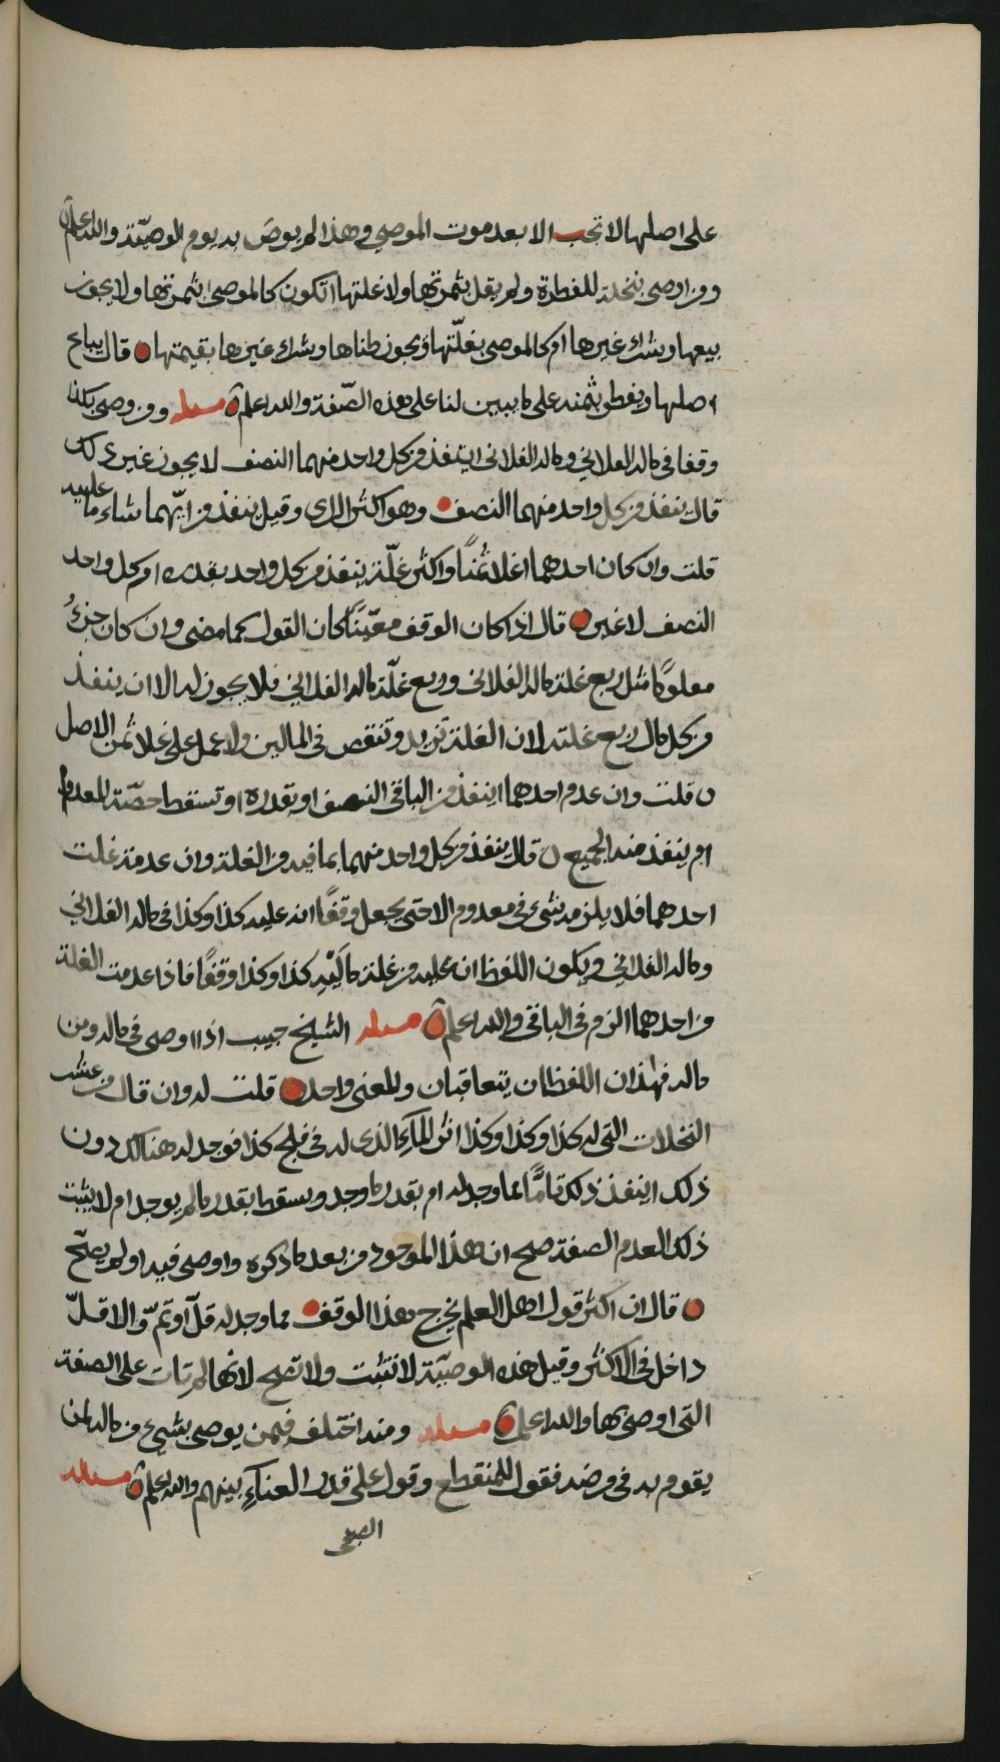 على اصلها لا تجب الا بعد موت الموصي وهذا لم يوص به يوم الوصيّة والله اعلم
ومن اوصى بنخلة للفطرة ولم يقل بثمرتها ولا غلتها اتكون كالموصى بثمرتها ولا يجوز
بيعها ويشترى غيرها ام كالموصى بغلّتها ويجوز طناها ويشترى غيرها بقيمتها قال يباع
اصلها ويفطر بثمنه على ما يبين لنا على هذه الصّفة والله اعلم مسئلة ومن وصى بكذا
وقفا في ماله الفلاني وماله الفلاني اينفذ من كل واحد منهما النصف لا يجوز غير ذلك
قال ينفذ من كل واحد منهما النصف وهو اكثر الراي وقيل ينفذ من ايّهما شاء ما عليه
قلت وان كان احدهما اغلا ثمنًا واكثر غلّة ينفذ من كل واحد بقدره ام كل واحد
النصف لا غير قال اذا كان الوقف معيّنًا كان القول كما مضى وان كان جزءً
معلومًا مثل ربع غلة ماله الفلاني وربع غلّة ماله الفلاني فلا يجوز له الا ان ينفذ
من كل مال ربع غلته لان الغلة تزيد وتنقص في المالين ولا عمل على غلا ثمن الاصل
قلت وان عدم احدهما اينفذ من الباقي النصف او بقدره او تسقط حصّة المعدوم
ام ينفذ منه الجميع قال ينفذ من كل واحد منهما بما فيه من الغلة وان عدمت غلت
احدهما فلا يلزمه شيء في معدوم الا حتى يجعل وقفًا انه عليه كذا وكذا في ماله الفلاني
وماله الفلاني ويكون اللفظ ان عليه من غلة ماليه كذا وكذا وقفًا فاذا عدمت الغلة
من احدهما الزم في الباقي والله اعلم مسئلة الشيخ حبيب اذا اوصى في ماله ومن
ماله فهذان اللفظان يتعاقبان والمعنى واحد قلت له وان قال من عشر
النخلات التي له كذا وكذا وكذا اثر الماء الذي له في فلج كذا فوجد له هنالك دون
ذلك اينفذ ذلك تامًّا مما وجد له ام بقدر ما وجد ويسقط بقدر ما لم يوجد ام لا يثبت
ذلك لعدم الصفة صح ان هذا الموجود من بعد ما ذكره واوصى فيه او لم يصّح
قال ان اكثر قول اهل العلم يخرج هذا الوقف مما وجد له قلّ او تمّ والاقلّ
داخل في الاكثر وقيل هذه الوصيّة لا تثبت ولا تصح لانها لم تات على الصفة
التي اوصى بها والله اعلم مسئلة ومنه اختلف فيمن يوصى بشيء من ماله لمن
يقوم به في مرضه فقول للمنقطع وقول على قدر العناء بينهم والله اعلم مسئلة
الصبحي